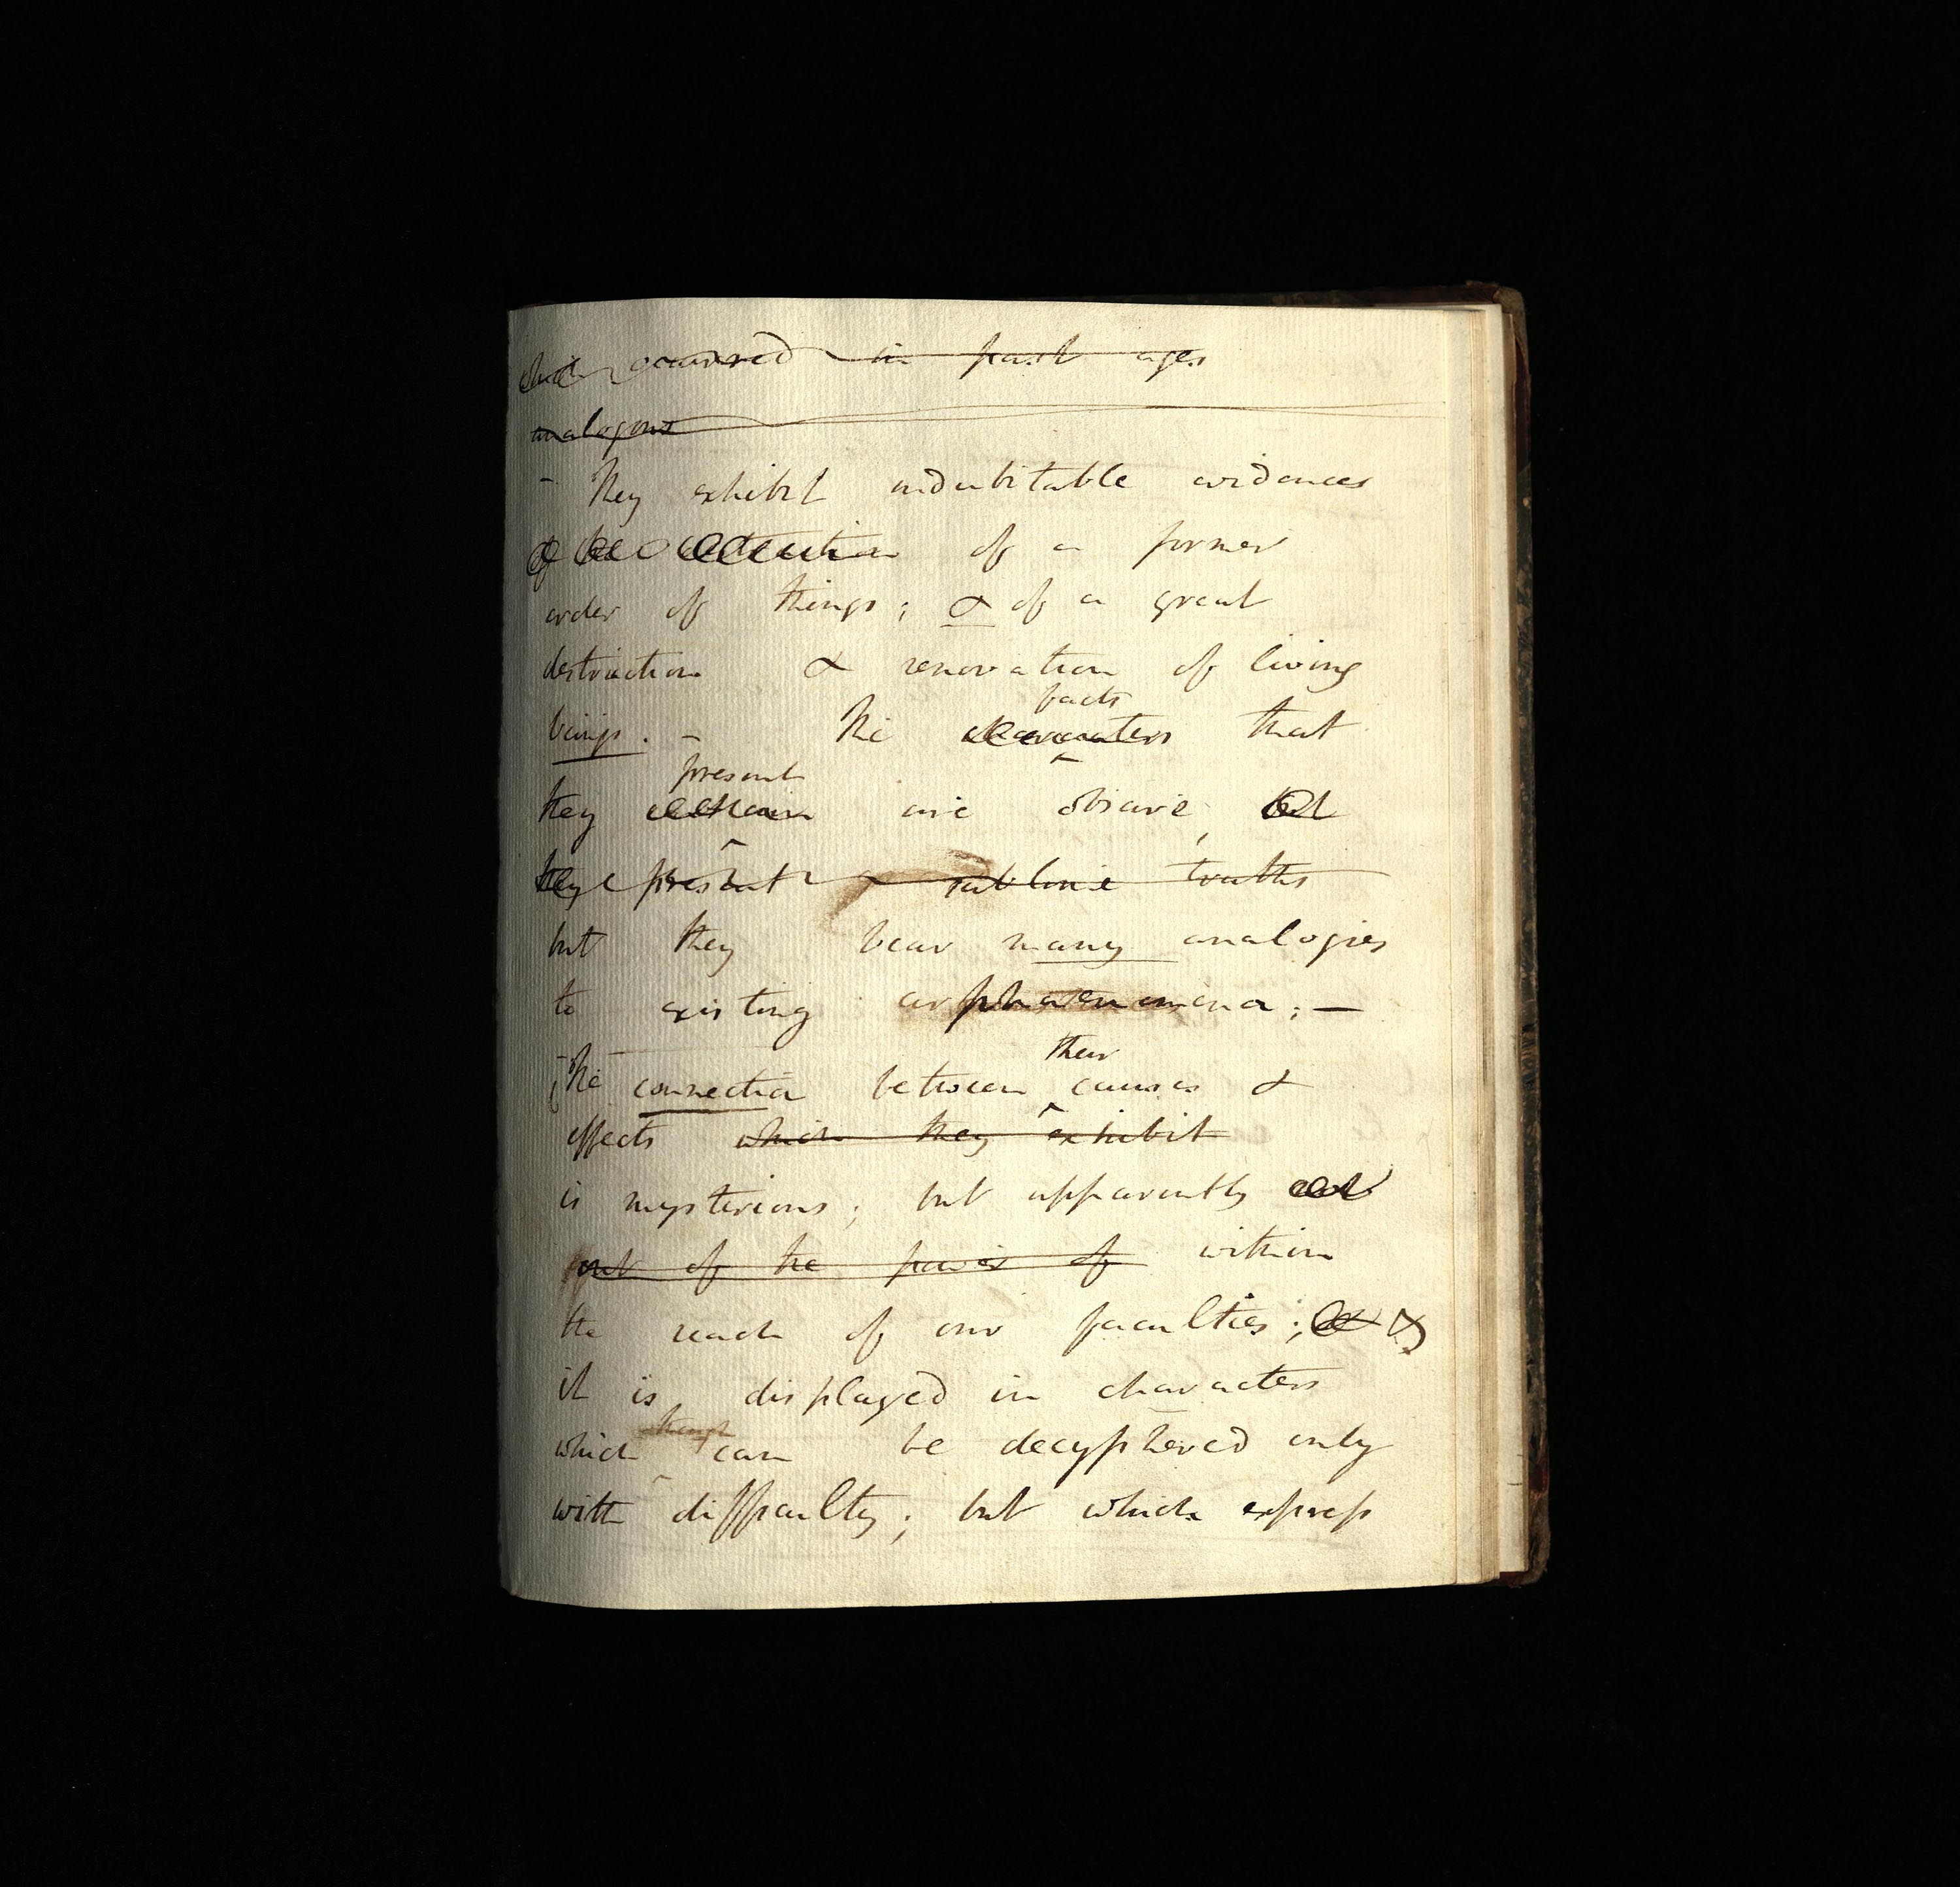 which occurred in past ages
analogous
- They exhibit indubitable evidences
of the destruction of a former
order of things; & of a great
destruction & renovation of living
facts
beings. - The characters that
present
they contain are obscure, but
they present sublime truths
but they bear many analogies
to existing phaenomena; —
their
The connection between causes &
effects which they exhibit
is mysterious; but apparently not
out of the power of within
the reach of our faculties; &
it is displayed in characters
which can be decyphered only
with difficulty; but which express